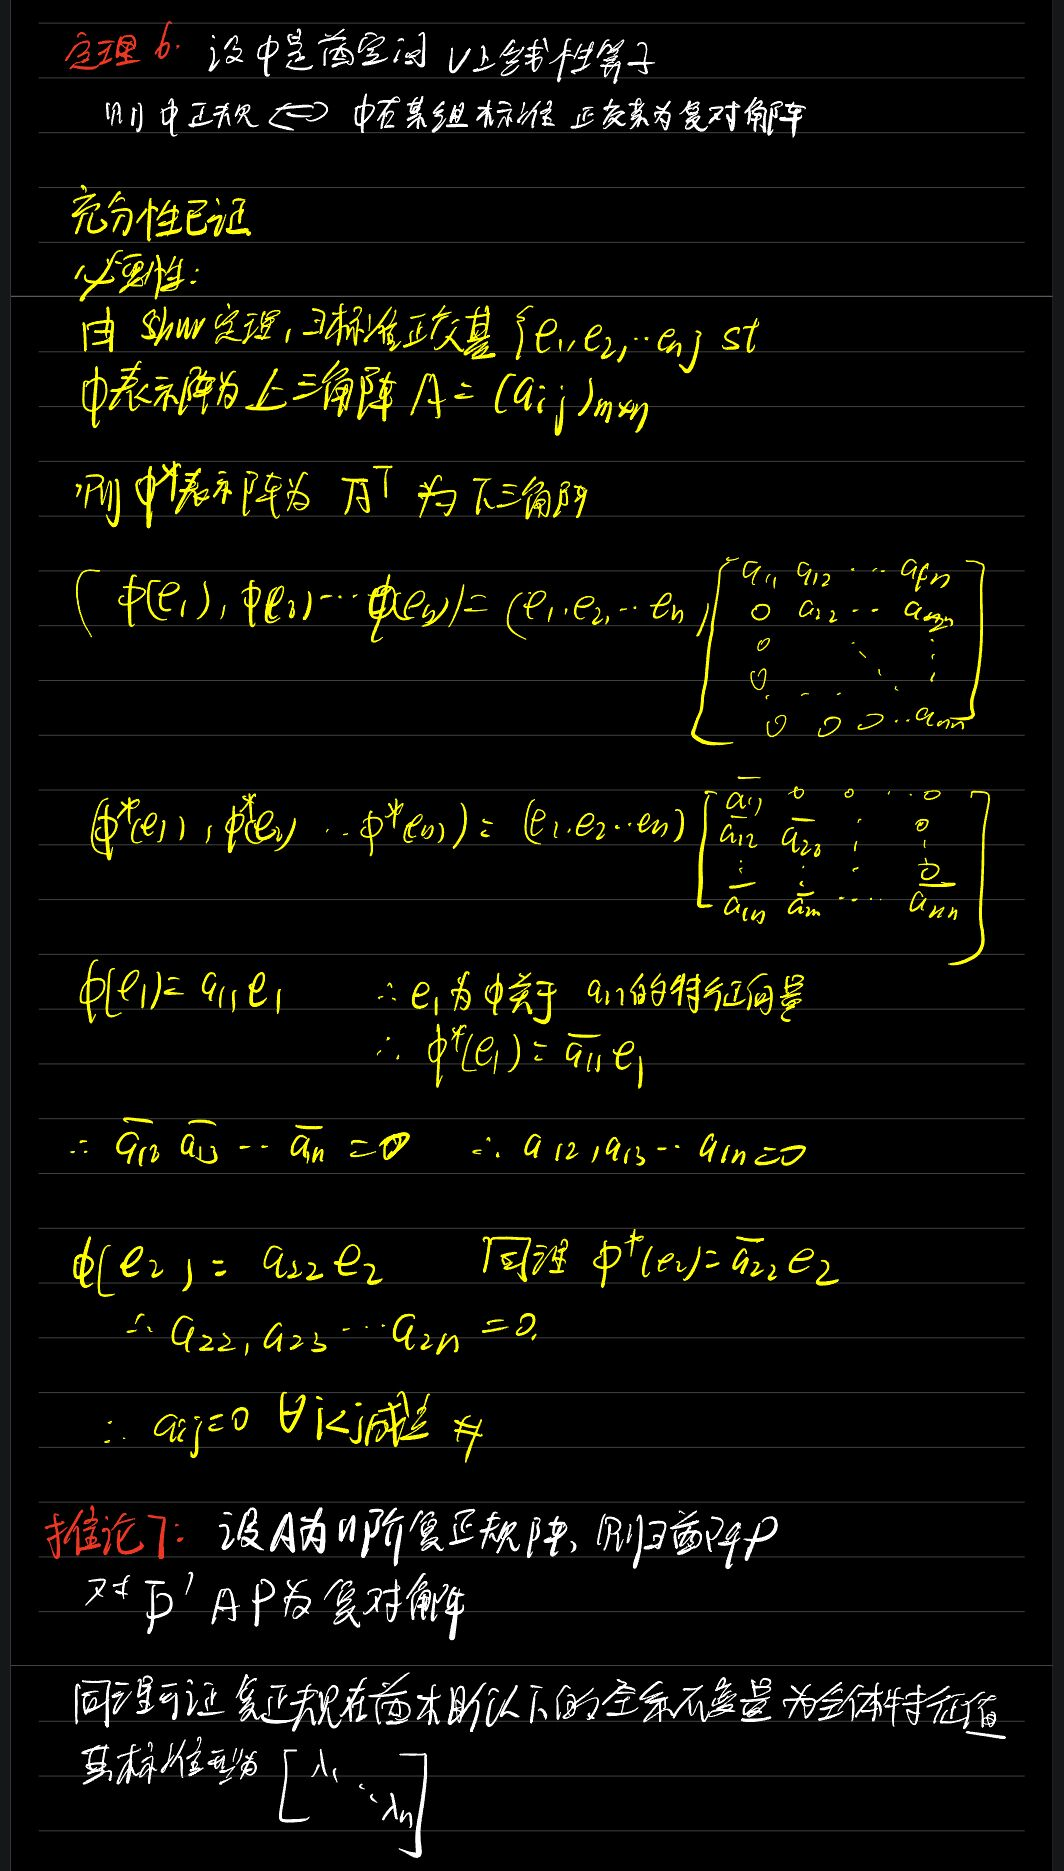 定理6. 设φ是酉空间 V上线性算子
则φ正规 <=> φ在某组标准正交基为复对角阵
充分性已证
必要性:
由 Shur定理, ∃标准正交基 {e₁, e₂, … eₙ} st
φ表示阵为上三角阵 A = (aᵢⱼ)ₘₓₙ
则φ*表示阵为 A̅ᵀ 为下三角阵
(φ(e₁), φ(e₂) … φ(eₙ)) = (e₁, e₂, … eₙ) [a₁₁ a₁₂ … a₁ₙ
0 a₂₂ … a₂ₙ
0 ⋱ ⋮
0
0 0 0 … aₙₙ]
(φ*(e₁), φ*(e₂) … φ*(eₙ)) = (e₁, e₂ … eₙ) [a̅₁₁ 0 0 … 0
a̅₁₂ a̅₂₂ ⋮ 0
⋮ ⋮ 0
a̅₁ₙ a̅₂ₙ … a̅ₙₙ]
φ(e₁) = a₁₁e₁ ∴ e₁为φ关于 a₁₁的特征向量
∴ φ*(e₁) = a̅₁₁e₁
∴ a̅₁₂ a̅₁₃ … a̅₁ₙ = 0 ∴ a₁₂, a₁₃ … a₁ₙ = 0
φ(e₂) = a₂₂e₂ 同理 φ*(e₂) = a̅₂₂e₂
∴ a₂₂, a₂₃ … a₂ₙ = 0.
∴ aᵢⱼ = 0 ∀ i<j成立 #
推论7: 设A为n阶复正规阵, 则∃酉阵P
对 P̅' A P为复对角阵
同理可证 复正规在酉相似下的全系不变量为全体特征值
其标准型为 [λ₁
⋱
λₙ]